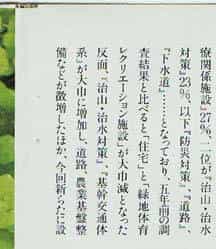 療関係施設』27％、二位が『治山・治水
対策』23％、以下『防災対策』、『道路』、
『下水道』……となっており、五年前の調
査結果と比べると、『住宅』と『緑地体育
レクリエーション施設』が大巾減となった
反面、『治山・治水対策』、『基幹交通体
系』が大巾に増加し、道路、農業基盤整
備などが微増したほか、今回新らたに設